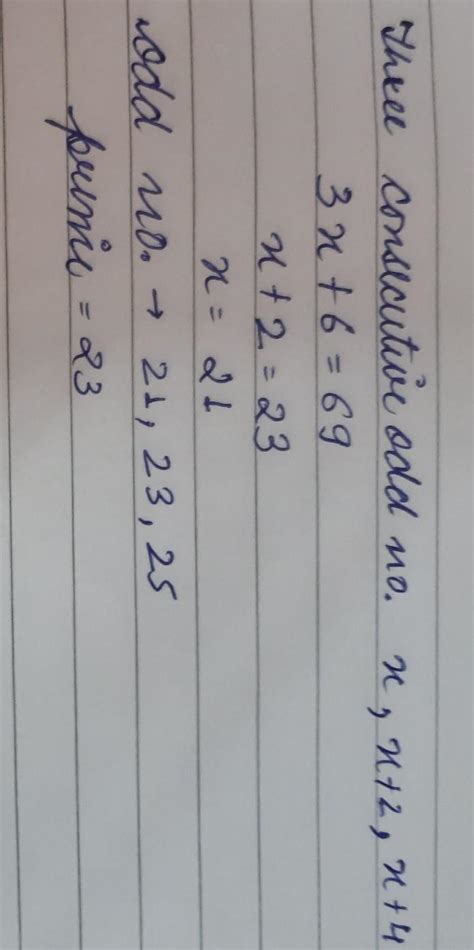 Three consecutive odd no. x, x+2, x+4
3x+6=69
x+2=23
x=21
odd no. → 21, 23, 25
prime = 23